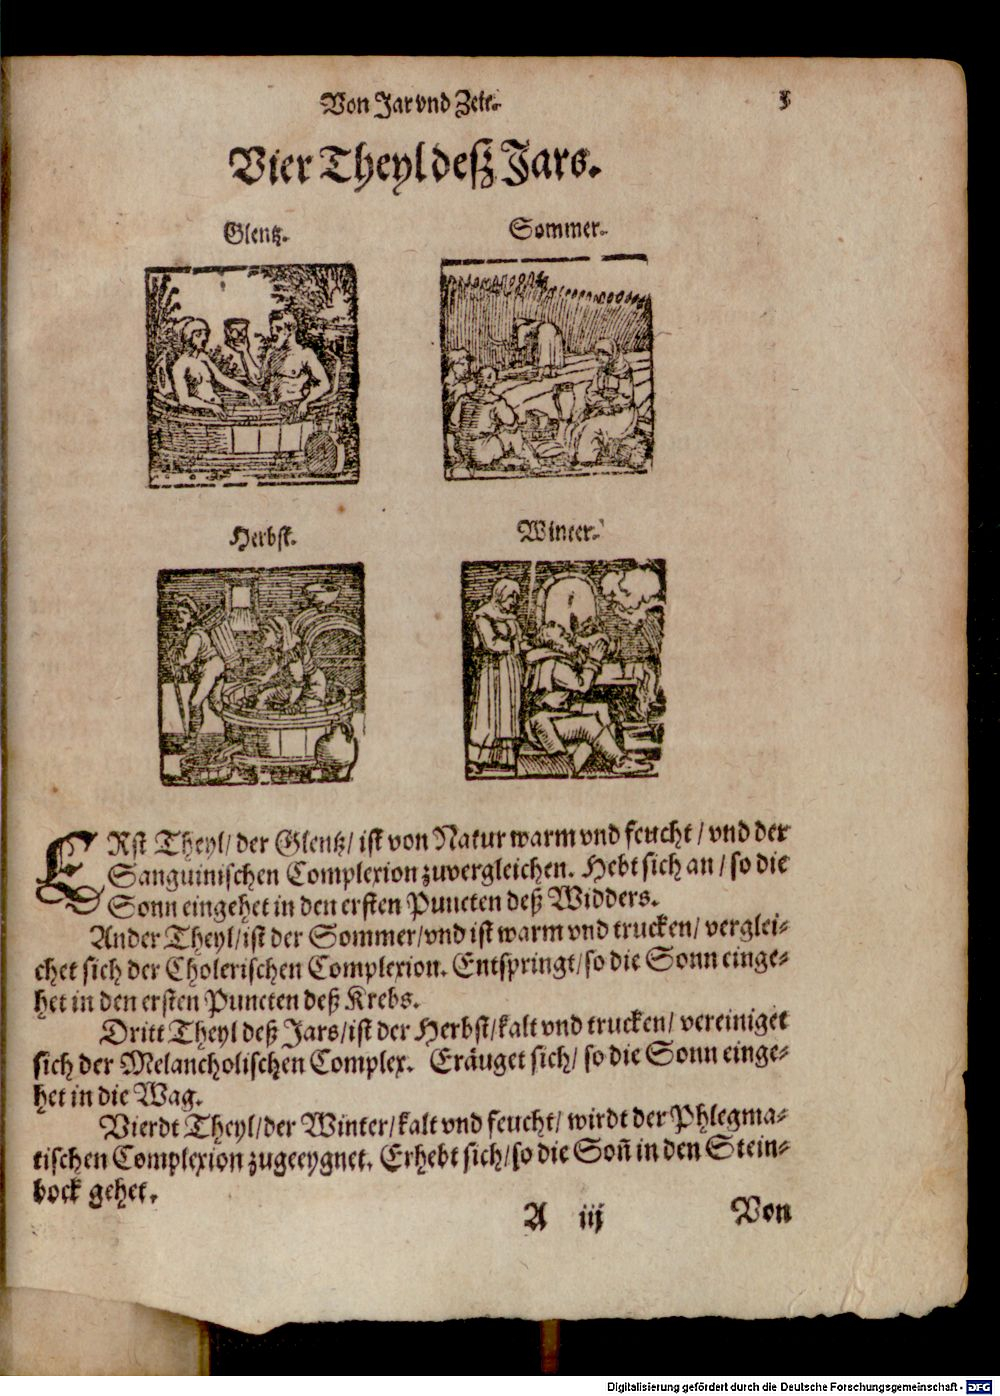 Von Jar vnd Zeit.
3
Vier Theyl deß Jars.
Glentz.
Sommer.
Herbst.
Winter.
ERst Theyl/ der Glentz/ ist von Natur warm vnd feucht/ vnd der
Sanguinischen Complexion zuvergleichen. Hebt sich an/ so die
Sonn eingehet in den ersten Puncten deß Widders.
Ander Theyl/ ist der Sommer/ vnd ist warm vnd trucken/ verglei-
chet sich der Cholerischen Complexion. Entspringt/ so die Sonn einge-
het in den ersten Puncten deß Krebs.
Dritt Theyl deß Jars/ ist der Herbst/ kalt vnd trucken/ vereiniget
sich der Melancholischen Complex. Eräuget sich/ so die Sonn einge-
het in die Wag.
Vierdt Theyl/ der Winter/ kalt vnd feucht/ wirdt der Phlegma-
tischen Complexion zugeeygnet. Erhebt sich/ so die Soñ in den Stein-
bock gehet.
A iij
Von
Digitalisierung gefördert durch die Deutsche Forschungsgemeinschaft - DFG